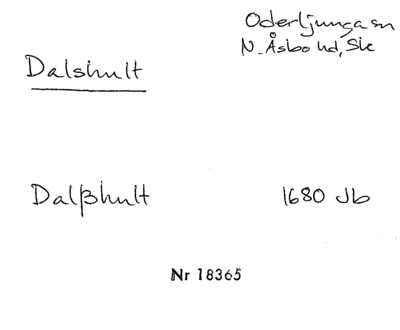 Oderljunga sn
N. Åsbo hd, Sk
Dalshult
Dalβhult 1680 Jb
Nr 18365